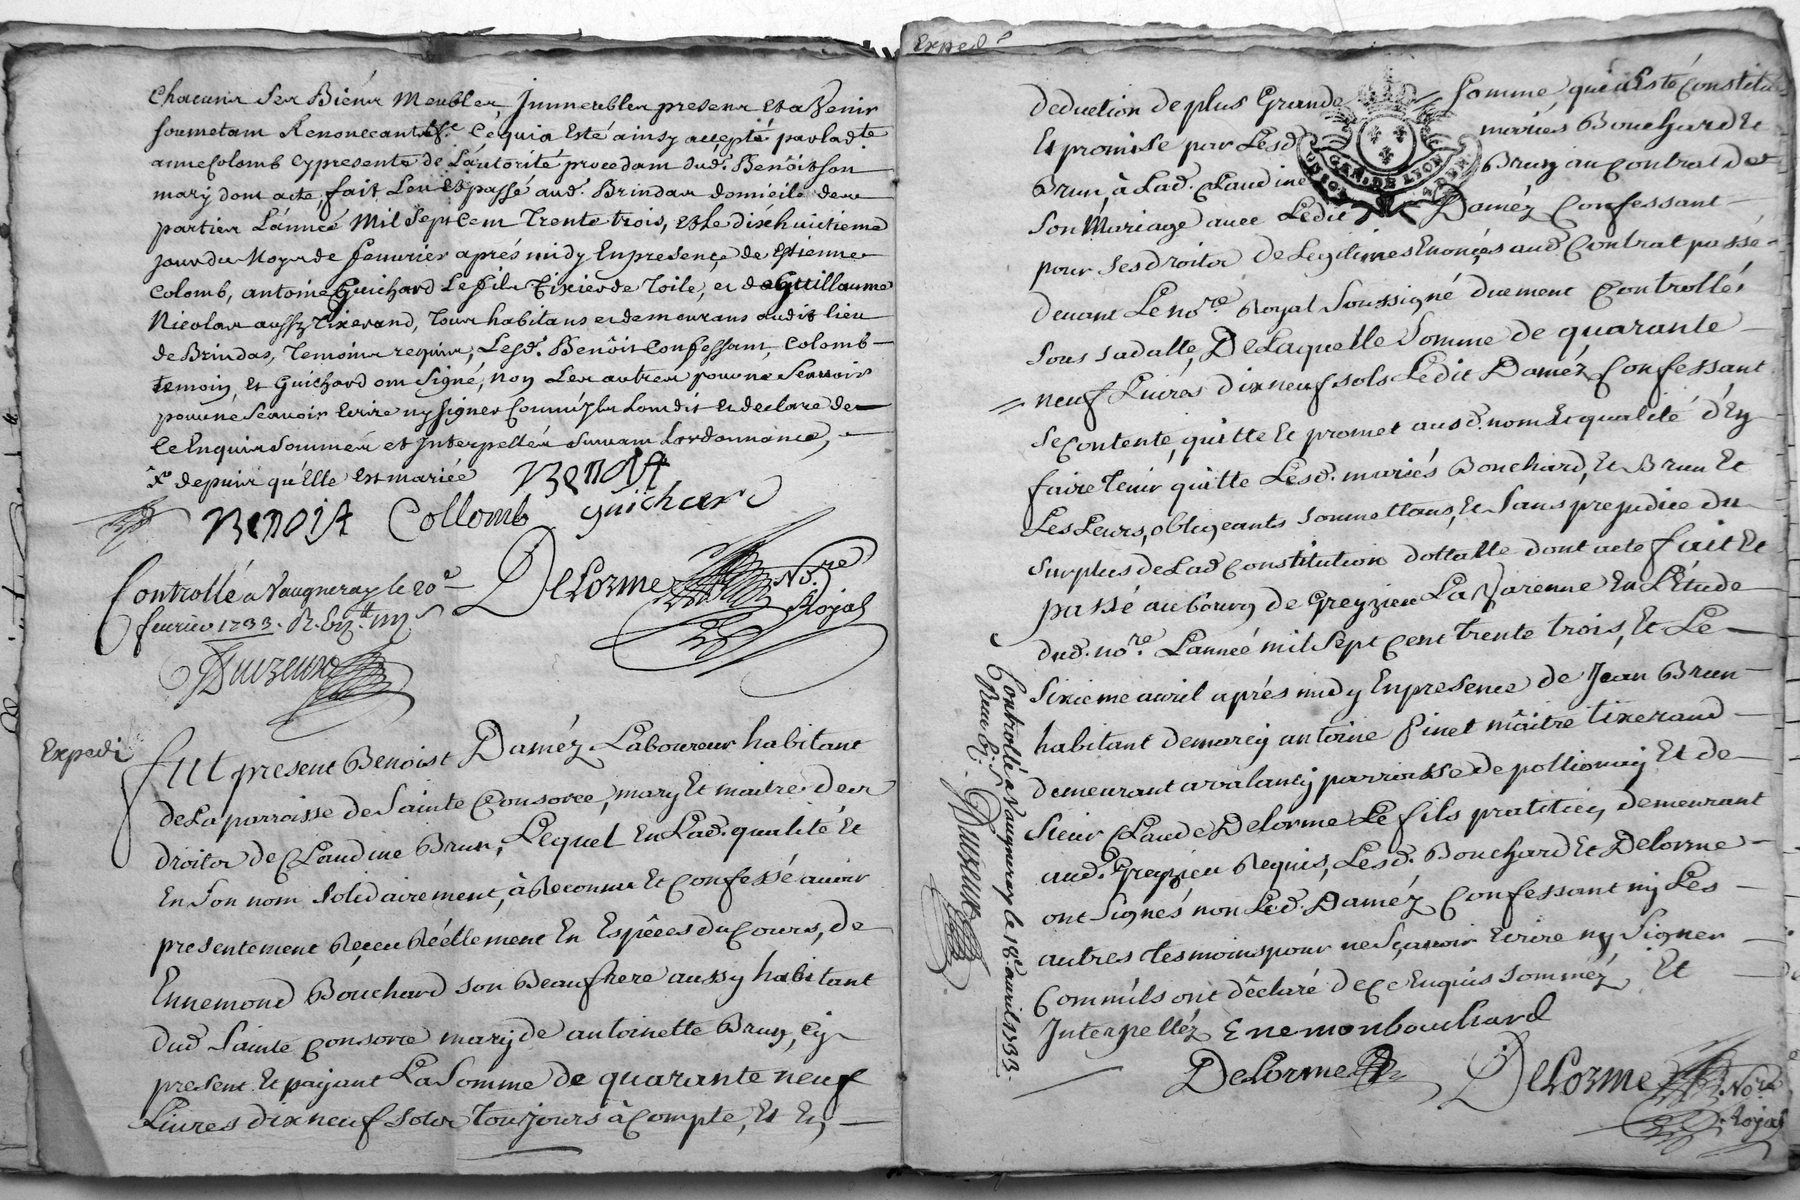 Chacuns ses Biens Meubles Immeubles presens et a Venir
soumetant Renonceant &c. Ce qui a Esté ainsy accepté par lad.te
anne Colomb Cy presente de L'autorité procedant dud. Benôit son
mary dont acte, fait Leu et passé aud. Brindas domicile des
parties L'année Mil Sept Cent Trente trois, et Le dixhuictieme
jour du Moys de fevrier aprés midy En presence de Estienne
Colomb, antoine Guichard Le fils Tixier de Toile, et de Guillaume
Nicolas aussy Tixerand, Tous habitans et demeurans audit lieu
de Brindas, Temoins requis, Lesd. Benôit Confessant, Colomb
temoin, et Guichard ont Signé, non Les autres pour ne Scavoir
pour ne Scavoir Ecrire ny Signer Comme ils L'ont dit et declaré de
Ce Enquis Sommés et Interpellés suivant L'ordonnance,
depuis qu'Elle est mariée
Benoit
Benoit Collomb guichard
Controllé a Vaugneray le 20e
fevrier 1733. R.
Delorme No.re
Royal
Duzeux
Expedi
fut present Benoist Daméz Laboureur habitant
de La parroisse de Sainte Consorce, mary Et maitre des
droits de Claudine Brun, Lequel En Lad. qualité Et
En Son nom Solidairement, à Reconnu Et Confessé avoir
presentement Reçeu Réellement En Espêces du Cours, de
Ennemond Bouchard son Beaufrere aussy habitant
dud Sainte Consorce mary de antoinette Brun, Cy
present Et payant La Somme de quarante neuf
Livres dix neuf Sols Toujours à Compte, Et En
Exped.
GEN. DE LYON
deduction de plus Grande Somme, qui a Esté Constituée
Et promise par Lesd mariés Bouchard Et
Brun, à Lad. Claudine Brun au Contrat de
Son Mariage avec Ledit Daméz Confessant
pour Ses droits de Legitimes Enonçés aud. Contrat passé
devant Le no.re Royal Soussigné duement Controllé
sous sa datte, De Laquelle Somme de quarante
neuf Livres dix neuf sols Ledit Daméz Confessant
se Contente, quitte Et promet aud. nom Et qualité d'En
faire Tenir quitte Lesd. mariés Bouchard, Et Brun Et
Les Leurs, obligeants Soumettans, Et Sans prejudice du
Surplus de Lad Constitution dottalle dont acte fait Et
passé au bourg de Greyzieu La Varenne En L'Etude
dud. no.re L'année mil Sept Cent trente trois, Et Le
Sixieme avril aprés midy En presence de Jean Brun
habitant de marcy antoine Pinet Maitre tixerand
demeurant a valancy parroisse de pollionay Et de
Sieur Claude Delorme Le fils pratitien demeurant
aud. Greyzieu Requis, Lesd. Bouchard Et Delorme
ont Signés non Led. Daméz Confessant ny Les
autres tesmoins pour ne Sçavoir Ecrire ny Signer
Comm'ils ont dêclaré de Ce Enquis Sommés Et
Interpelléz Enemonbouchard
Delorme Delorme No.re
Royal
Controllé a Vaugneray le 18e avril 1733.
Duzeux